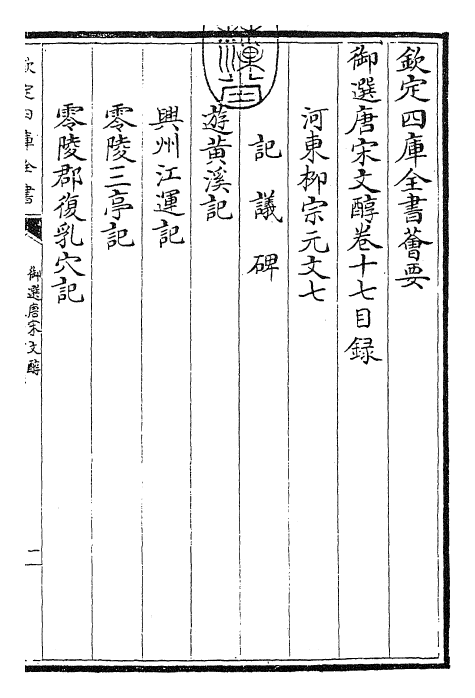 欽定四庫全書薈要
御選唐宋文醇卷十七目録
河東柳宗元文七
記議碑
遊黄溪記
興州江運記
零陵三亭記
零陵郡復乳穴記
欽定四庫全書
御選唐宋文醇